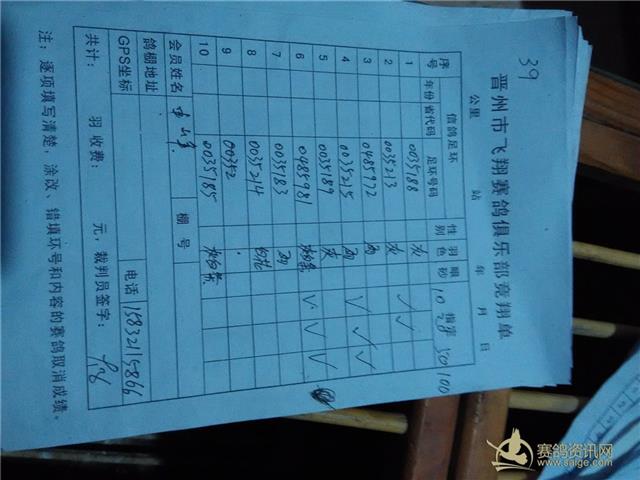 39
晋州市飞翔赛鸽俱乐部竞翔单
公里 站 年 月 日
序号 信鸽足环 性别 羽色 眼砂 指定
年份 省代码 足环号码 10 20 50 100
1 0035188 灰 √ √
2 0035213 灰
3 0485972 雨 √
4 0035215 雨 √ √
5 0035189 灰
6 0485981 灰白条 √ √ √
7 0035183 雨
8 0035214 白花
9 00352
10 0035185 灰白条
会员姓名 棚号
鸽棚地址
GPS坐标 电话 15832115866
共计: 羽 收费: 元,裁判员签字:
注:逐项填写清楚,涂改、错填环号和内容的赛鸽取消成绩。
赛鸽资讯网
www.saige.com